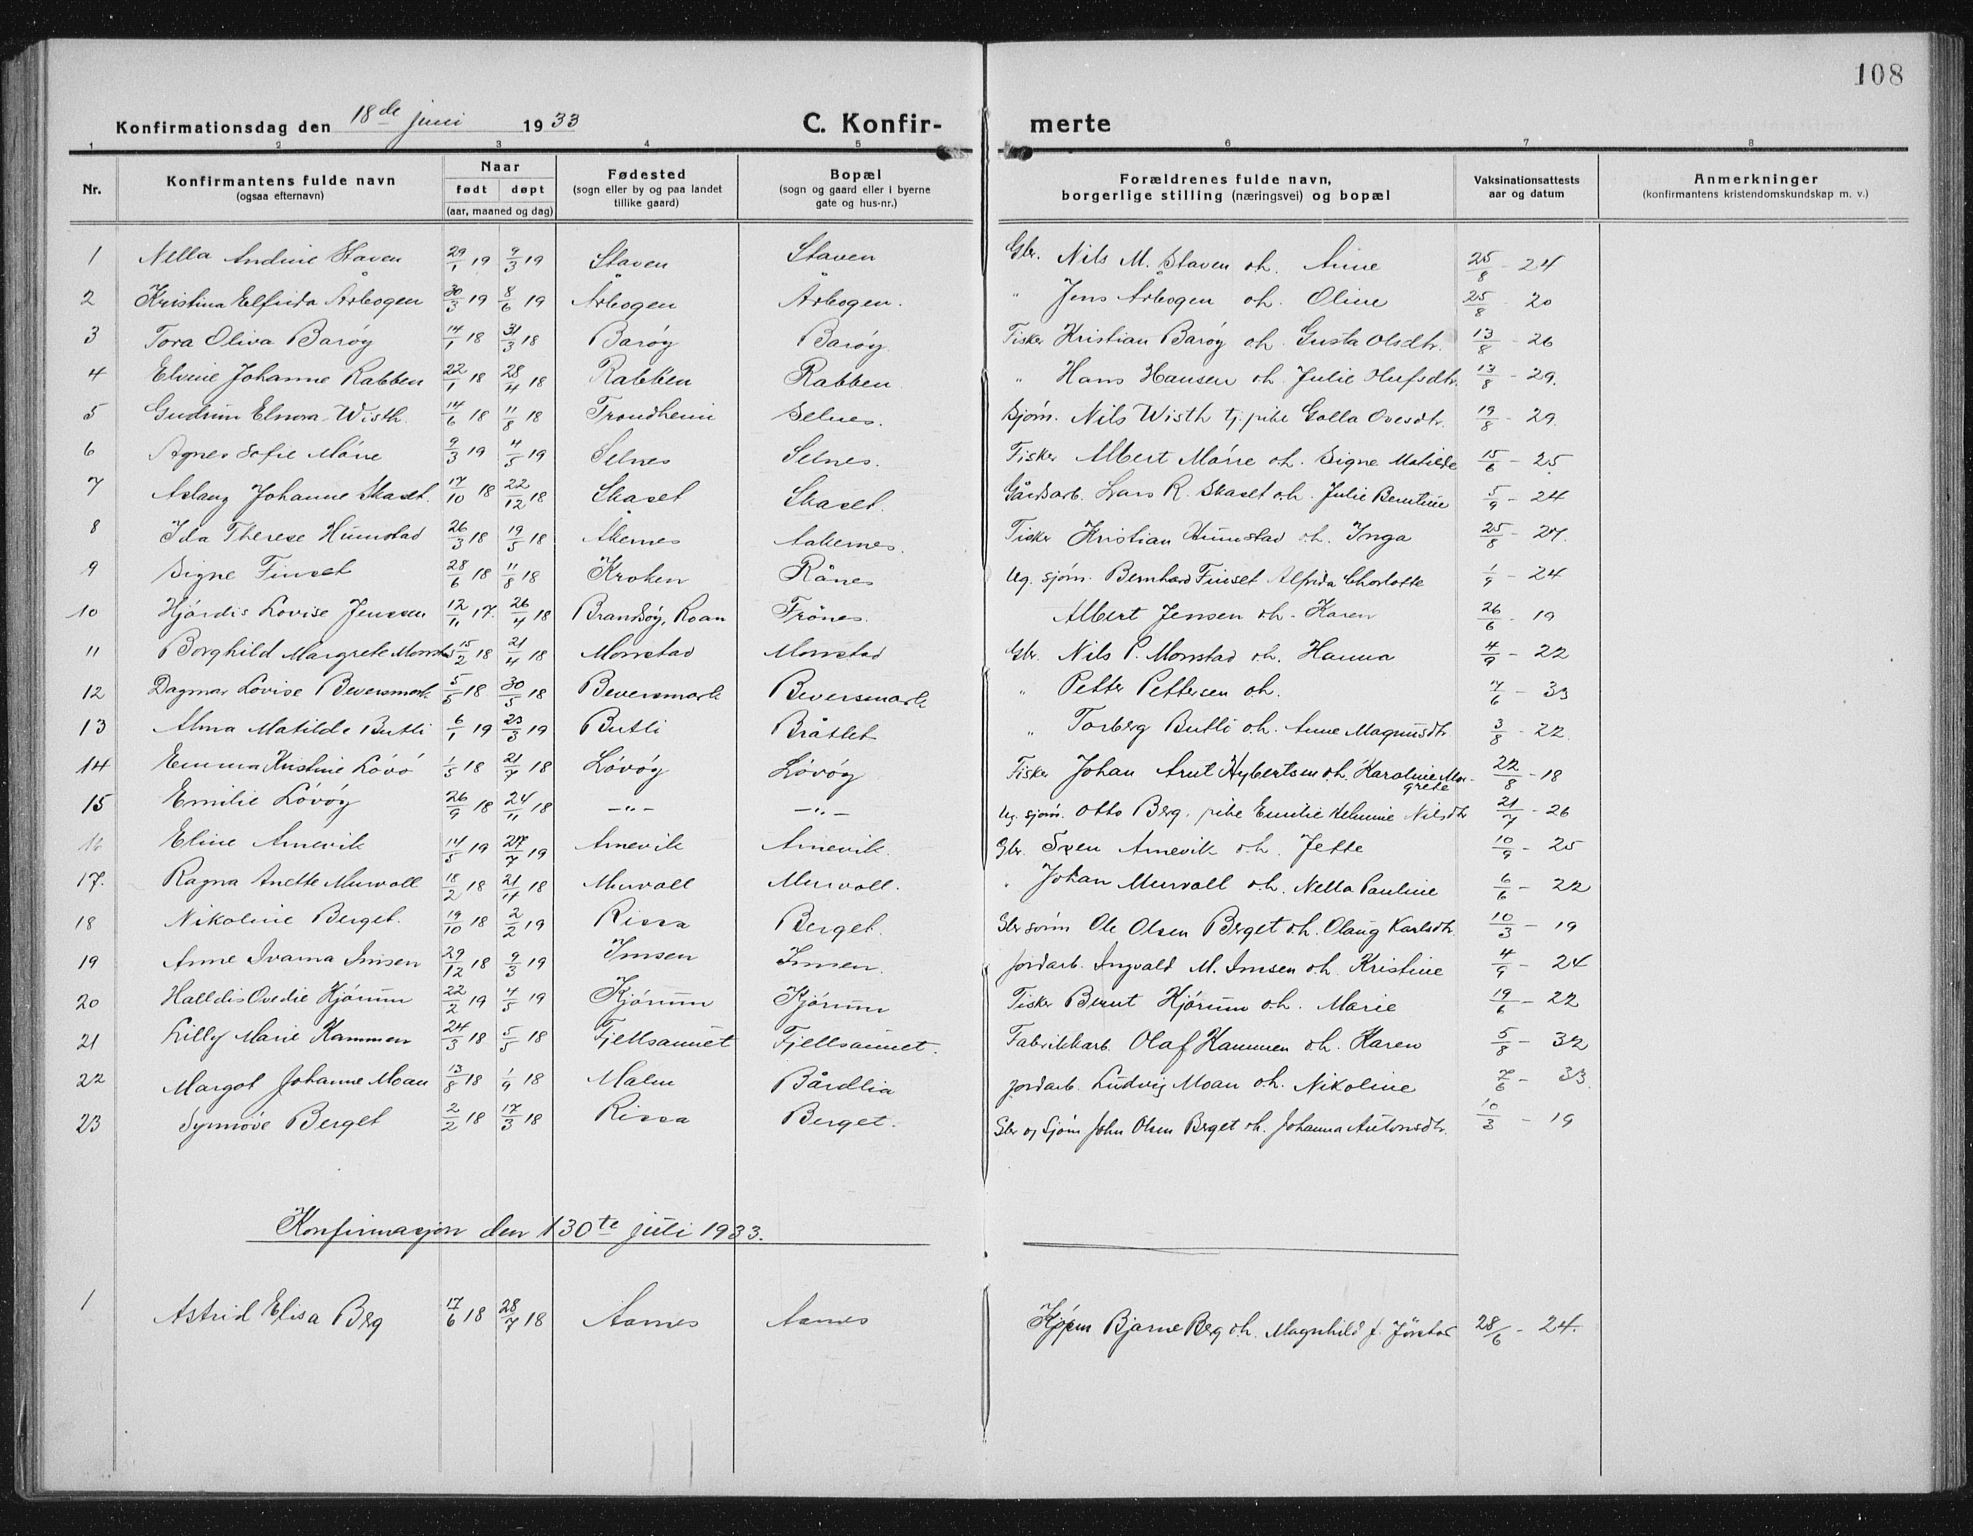 108
Konfirmationsdag den 18de juni 1933 C. Konfir- merte
1 2 3 4 5 6 7 8
Nr. Konfirmantens fulde navn (ogsaa efternavn) Naar født døpt (aar, maaned og dag) Fødested (sogn eller by og paa landet tillike gaard) Bopæl (sogn og gaard eller i byerne gate og hus-nr.) Forældrenes fulde navn, borgerlige stilling (næringsvei) og bopæl Vaksinationsattests aar og datum Anmerkninger (konfirmantens kristendomskundskap m. v.)
1 Nella Andine Staven 29/1 19 9/3 19 Staven Staven Gbr. Nils M. Staven o.h. Anne 25/8 - 24
2 Kristina Elfrida Årbogen 30/3 19 8/6 19 Årbogen Årbogen. " Jens Årbogen o.h. Oline 25/8 - 20
3 Tora Oliva Barøy 14/1 18 31/3 18 Barøy Barøy Fisker Kristian Barøy o.h. Gusta Olsdtr. 13/8 - 26
4 Elvine Johanne Rabben 22/1 18 28/4 18 Rabben Rabben. " Hans Hansen o.h. Julie Olufsdtr. 13/8 - 29.
5 Gudrun Elnora Wisth. 14/6 18 11/8 18 Trondheim Selnes. Sjøm. Nils Wisth tj. pike Golla Ovesdtr. 19/8 - 29.
6 Agnes Sofie Mørre 9/3 19 4/5 19 Selnes Selnes. Fisker Albert Mørre o.h. Signe Matilde 15/6 - 25
7 Aslaug Johanne Skaset. 17/10 18 22/12 18 Skaset Skaset. Gårdsarb. Lars R. Skaset o.h. Julie Berntine 5/9 - 24
8 Ida Therese Humstad 26/3 18 19/5 18 Åkernes Aakernes. Fisker Kristian Humstad o.h. Inga 25/8 - 27.
9 Signe Finset 28/6 18 11/8 18 Kroken Rånes Ug. sjøm. Bernhard Finset Alfrida Charlotte 1/9 - 24
10 Hjørdis Lovise Jenssen 12/11 17. 26/4 18 Brandsøy, Roan Frønes. Albert Jensen o.h. Karen 26/6 - 19
11 Borghild Margrete Monstad 15/2 18 21/4 18 Monstad Monstad Gbr. Nils P. Monstad o.h. Hanna 4/9 - 22
12 Dagmar Lovise Beversmark 5/5 18 30/5 18 Beversmark Beversmark " Petter Pettersen o.h. 7/6 - 33
13 Alma Matilde Butli 6/1 19 23/3 19 Butli Bråtlet " Torberg Butli o.h. Anne Magnusdtr 3/8 - 22.
14 Emma Kristine Lövö 1/5 18 21/7 18 Lövöy Lövöy Fisker Johan Arnt Hybertsen o.h. Karoline Mar-
grete 22/8 - 18
15 Emilie Lövöy 26/9 18 24/11 18 —"— —"— Ug. sjøm. Otto Berg, pike Emilie Helmine Nilsdtr 21/7 - 26
16 Eline Arnevik 14/5 19 27/7 19 Arnevik Arnevik. Gbr. Sven Arnevik o.h. Jette 10/9 - 25
17. Ragna Anette Murvoll 18/2 18 21/4 18 Murvoll Murvoll. " Johan Murvoll o.h. Nella Pauline 6/6 - 22
18 Nikoline Berget. 19/10 18 2/2 19 Rissa Berget. Gbr sønn Ole Olsen Berget o.h. Olaug Karlsdtr. 10/3 - 19
19 Anne Ivarna Imsen 29/12 18 9/3 19 Imsen Imsen. Jordarb. Ingvald M. Imsen o.h. Kristine 4/9 - 24
20 Halldis Ovedie Kjørum 22/2 19 4/5 19 Kjørum Kjørum Fisker Bernt Kjørum o.h. Marie 19/6 - 22
21 Lilly Marie Kammen 24/3 18 5/5 18 Fjellsaunet Fjellsaunet. Fabrikkarb. Olaf Kammen o.h. Karen 5/8 - 32
22 Margot Johanne Moan 13/8 18 1/9 18 Malm Bårdlia Jordarb. Ludvig Moan o.h. Nikoline 7/6 - 33.
23 Synnöve Berget 2/2 18 17/3 18 Rissa Berget. Gbr og Sjøm John Olsen Berget o.h. Johanna Antonsdtr. 10/3 - 19
Konfirmasjon den 30te juli 1933.
1 Astrid Elisa Berg 17/6 18 28/7 18 Aarnes Aarnes Kjøpm Bjarne Berg o.h. Magnhild f. Jørstad 28/6 - 24.